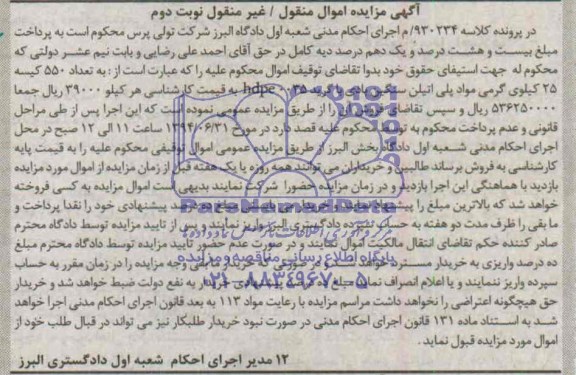 آگهی مزایده اموال منقول / غیر منقول نوبت دوم
در پرونده کلاسه ۹۳۰۲۳۴/ م اجرای احکام مدنی شعبه اول دادگاه البرز شرکت تولی پرس محکوم است به پرداخت
مبلغ بیست و هشت درصد و یک دهم درصد دیه کامل در حق آقای احمد علی رضایی و بابت نیم عشر دولتی که
محکوم له جهت استیفای حقوق خود بدوا تقاضای توقیف اموال محکوم علیه را که عبارت است از : به تعداد ۵۵۰ کیسه
۲۵ کیلوی گرمی مواد پلی اتیلن سنگین بادی با گرید ۰۰۳۵ hdpe به قیمت کارشناسی هر کیلو ۳۹۰۰۰ ریال جمعا
۵۳۶۲۵۰۰۰۰ ریال و سپس تقاضای فروش آن را از طریق مزایده عمومی نموده است که این اجرا پس از طی مراحل
قانونی و عدم پرداخت محکوم به توسط محکوم علیه قصد دارد در مورخ ۱۳۹۴/۰۶/۳۱ ساعت ۱۱ الی ۱۲ صبح در محل
اجرای احکام مدنی شعبه اول دادگاه بخش البرز از طریق مزایده عمومی اموال توقیفی محکوم علیه را به قیمت پایه
کارشناسی به فروش برساند طالبین و خریداران می توانند همه روزه یا یک هفته قبل از زمان مزایده از اموال مورد مزایده
بازدید با هماهنگی این اجرا بازدید و در زمان مزایده حضورا شرکت نمایند بدیهی است اموال مزایده به کسی فروخته
خواهد شد که بالاترین مبلغ را پیشنهاد نماید خریدار می بایستی مبلغ ده درصد پیشنهادی خود را نقدا پرداخت و
ما بقی را ظرف مدت دو هفته به حساب سپرده دادگستری البرز واریز نمایند و پس از تایید مزایده توسط دادگاه محترم
صادر کننده حکم تقاضای انتقال مالکیت اموال نمایند و در صورت عدم حضور تایید مزایده توسط دادگاه محترم مبلغ
ده درصد واریزی به خریدار مسترد خواهد شد و در صورتی که خریدار ما بقی وجه مزایده را در زمان مقرر به حساب
سپرده واریز ننمایند و یا اعلام انصراف نماید مبلغ ده درصد پیشنهادی خریدار به نفع دولت ضبط خواهد شد و خریدار
حق هیچگونه اعتراضی را نخواهد داشت مراسم مزایده با رعایت مواد ۱۱۳ به بعد قانون اجرای احکام مدنی اجرا خواهد
شد به استناد ماده ۱۳۱ قانون اجرای احکام مدنی در صورت نبود خریدار طلبکار نیز می تواند در قبال طلب خود از
اموال مورد مزایده قبول نماید .
۱۲ مدیر اجرای احکام شعبه اول دادگستری البرز
ParsNamadData
پایگاه اطلاع رسانی مناقصه و مزایده
۰۲۱-۸۸۳۴۹۶۷۰-۵